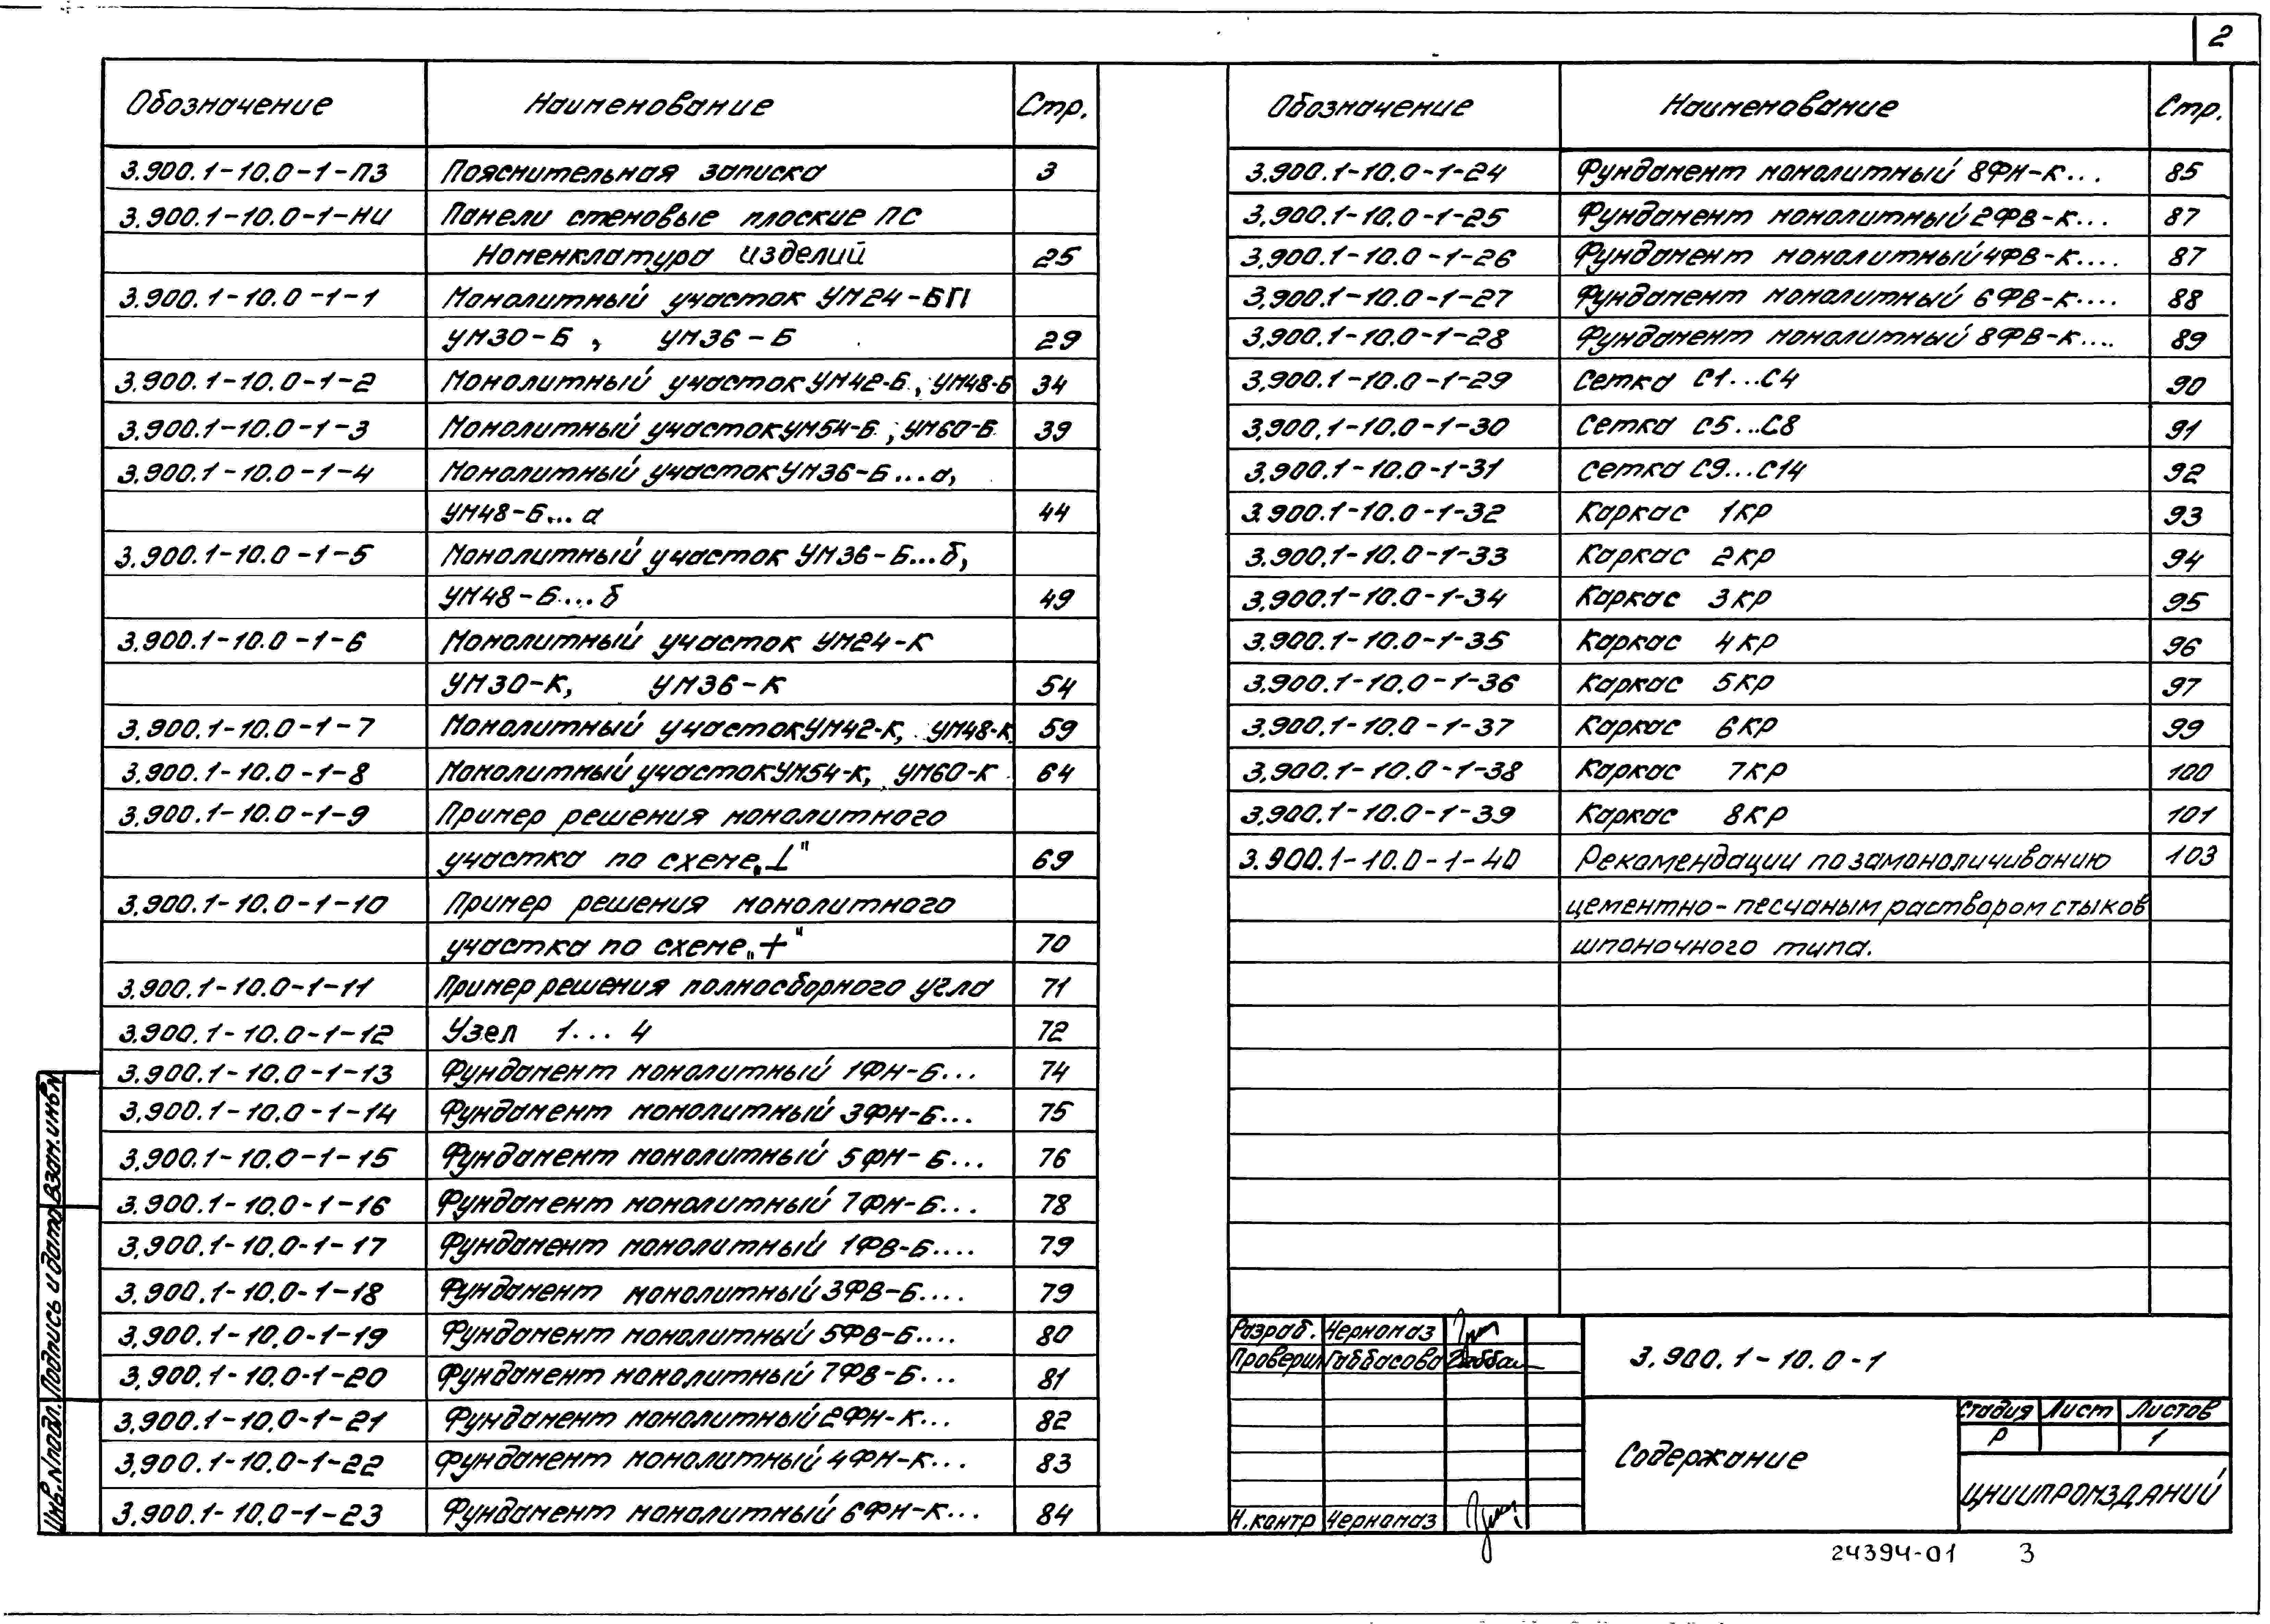 2
Обозначение Наименование Стр.
3.900.1-10.0-1-ПЗ Пояснительная записка 3
3.900.1-10.0-1-НИ Панели стеновые плоские ПС
Номенклатура изделий 25
3.900.1-10.0-1-1 Монолитный участок УМ24-БП
УМ30-Б, УМ36-Б 29
3.900.1-10.0-1-2 Монолитный участок УМ42-Б, УМ48-Б 34
3.900.1-10.0-1-3 Монолитный участок УМ54-Б, УМ60-Б 39
3.900.1-10.0-1-4 Монолитный участок УМ36-Б...а,
УМ48-Б...а 44
3.900.1-10.0-1-5 Монолитный участок УМ36-Б...б,
УМ48-Б...б 49
3.900.1-10.0-1-6 Монолитный участок УМ24-К
УМ30-К, УМ36-К 54
3.900.1-10.0-1-7 Монолитный участок УМ42-К, УМ48-К 59
3.900.1-10.0-1-8 Монолитный участок УМ54-К, УМ60-К 64
3.900.1-10.0-1-9 Пример решения монолитного
участка по схеме „⊥" 69
3.900.1-10.0-1-10 Пример решения монолитного
участка по схеме „+" 70
3.900.1-10.0-1-11 Пример решения полносборного угла 71
3.900.1-10.0-1-12 Узел 1...4 72
3.900.1-10.0-1-13 Фундамент монолитный 1ФН-Б... 74
3.900.1-10.0-1-14 Фундамент монолитный 3ФН-Б... 75
3.900.1-10.0-1-15 Фундамент монолитный 5ФН-Б... 76
3.900.1-10.0-1-16 Фундамент монолитный 7ФН-Б... 78
3.900.1-10.0-1-17 Фундамент монолитный 1ФВ-Б.... 79
3.900.1-10.0-1-18 Фундамент монолитный 3ФВ-Б.... 79
3.900.1-10.0-1-19 Фундамент монолитный 5ФВ-Б.... 80
3.900.1-10.0-1-20 Фундамент монолитный 7ФВ-Б... 81
3.900.1-10.0-1-21 Фундамент монолитный 2ФН-К... 82
3.900.1-10.0-1-22 Фундамент монолитный 4ФН-К... 83
3.900.1-10.0-1-23 Фундамент монолитный 6ФН-К... 84
Обозначение Наименование Стр.
3.900.1-10.0-1-24 Фундамент монолитный 8ФН-К... 85
3.900.1-10.0-1-25 Фундамент монолитный 2ФВ-К... 87
3.900.1-10.0-1-26 Фундамент монолитный 4ФВ-К.... 87
3.900.1-10.0-1-27 Фундамент монолитный 6ФВ-К.... 88
3.900.1-10.0-1-28 Фундамент монолитный 8ФВ-К.... 89
3.900.1-10.0-1-29 Сетка С1...С4 90
3.900.1-10.0-1-30 Сетка С5...С8 91
3.900.1-10.0-1-31 Сетка С9...С14 92
3.900.1-10.0-1-32 Каркас 1КР 93
3.900.1-10.0-1-33 Каркас 2КР 94
3.900.1-10.0-1-34 Каркас 3КР 95
3.900.1-10.0-1-35 Каркас 4КР 96
3.900.1-10.0-1-36 Каркас 5КР 97
3.900.1-10.0-1-37 Каркас 6КР 99
3.900.1-10.0-1-38 Каркас 7КР 100
3.900.1-10.0-1-39 Каркас 8КР 101
3.900.1-10.0-1-40 Рекомендации по замоноличиванию 103
цементно-песчаным раствором стыков
шпоночного типа.
Взам.инв.N
Подпись и дата
Инв.N подл.
Разраб. Черномаз
Проверил Габбасова Габбас
Н.контр Черномаз
3.900.1-10.0-1
Содержание
Стадия Лист Листов
Р 1
ЦНИИПРОМЗДАНИЙ
24394-01 3